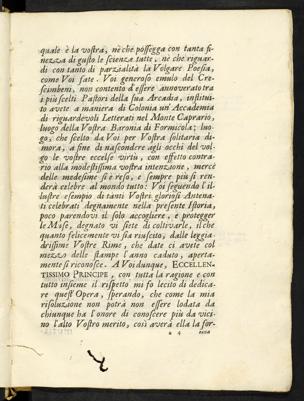 quale è la vostra, nè che possegga con tanta fi-
nezza di gusto le scienze tutte, nè che riguar-
di con tanto di parzialità la Volgare Poesia,
come Voi fate. Voi generoso emulo del Cre-
scimbeni, non contento d'essere annoverato tra
i più scelti Pastori della sua Arcadia, institui-
to avete a maniera di Colonia un'Accademia
di riguardevoli Letterati nel Monte Caprario,
luogo della Vostra Baronia di Formicola; luo-
go, che scelto da Voi per Vostra solitaria di-
mora, a fine di nascondere agli occhi del vol-
go le vostre eccelse virtù, con effetto contra-
rio alla modestissima vostra intenzione, mercè
delle medesime si è reso, e sempre più si ren-
derà celebre al mondo tutto: Voi seguendo l'il-
lustre esempio di tanti Vostri gloriosi Antena-
ti celebrati degnamente nella presente Istoria,
poco parendovi il solo accogliere, e protegger
le Muse, degnato vi siete di coltivarle, il che
quanto felicemente vi sia riuscito, dalle leggia-
drissime Vostre Rime, che date ci avete col
mezzo delle stampe l'anno caduto, aperta-
mente si riconosce. A Voi dunque, ECCELLEN-
TISSIMO PRINCIPE, con tutta la ragione e con
tutto insieme il rispetto mi fo lecito di dedica-
re quest'Opera, sperando, che come la mia
risoluzione non potrà non essere lodata da
chiunque ha l'onore di conoscere più da vici-
no l'alto Vostro merito, così averà ella la for-
a 4 tuna